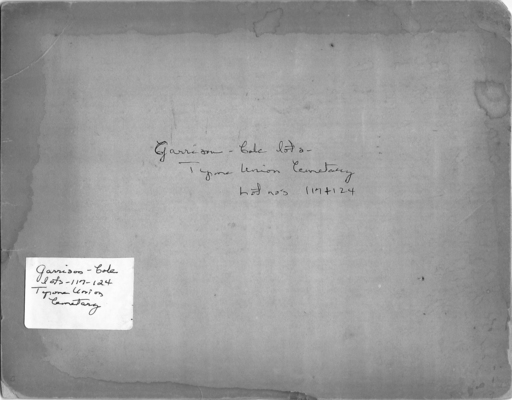 Garrison - Cole lots -
Tyrone Union Cemetery
Lot nos 117+124
Garrison - Cole
lots - 117-124
Tyrone Union
Cemetery